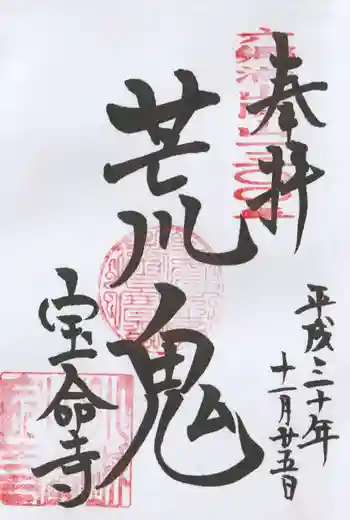 奉拝
平成三十年
十一月廿五日
荒鬼
宝命寺